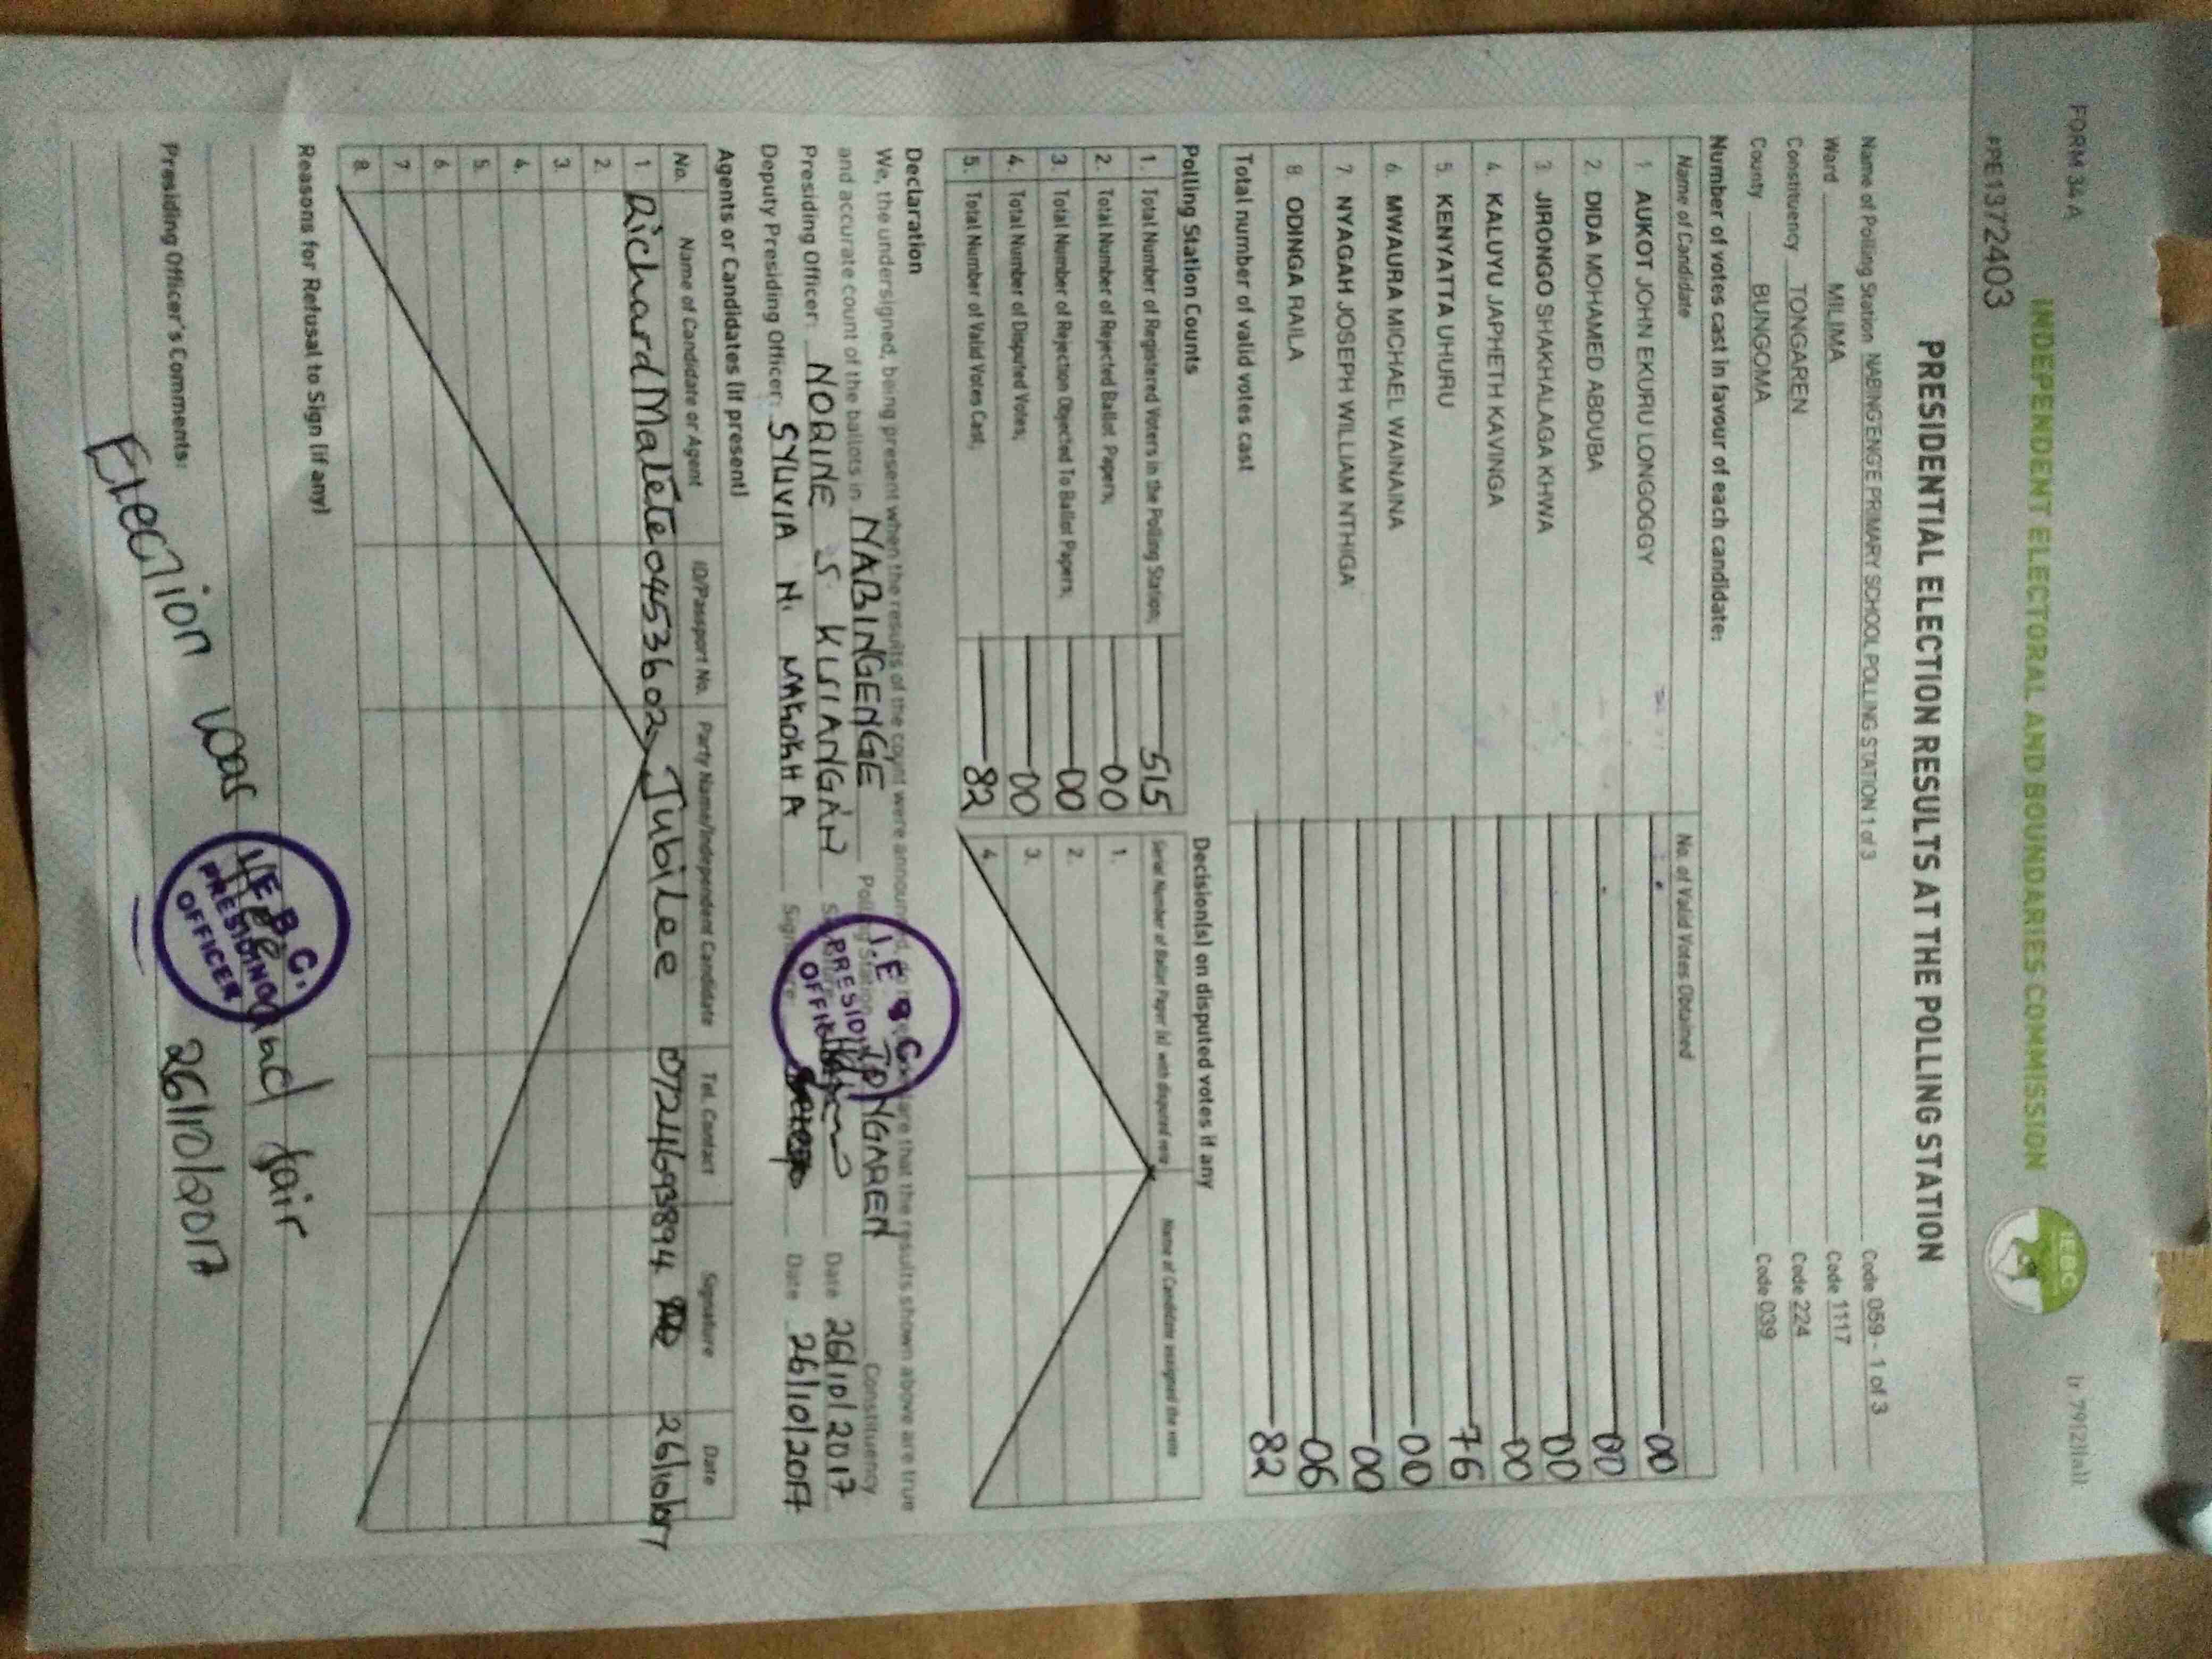 FORM 34 A
(r 79(2)(a))
INDEPENDENT ELECTORAL AND BOUNDARIES COMMISSION
IEBC
PPE1372403
PRESIDENTIAL ELECTION RESULTS AT THE POLLING STATION
Name of Polling Station NABING'ENGE PRIMARY SCHOOL POLLING STATION 1 of 3 Code 059 - 1 of 3
Ward MILIMA Code 1117
Constituency TONGAREN Code 224
County BUNGOMA Code 039
Number of votes cast in favour of each candidate:
Name of Candidate No. of Valid Votes Obtained
1. AUKOT JOHN EKURU LONGOGGY 00
2. DIDA MOHAMED ABDUBA 00
3. JIRONGO SHAKHALAGA KHWA 00
4. KALUYU JAPHETH KAVINGA 00
5. KENYATTA UHURU 76
6. MWAURA MICHAEL WAINAINA 00
7 NYAGAH JOSEPH WILLIAM NTHIGA 00
8 ODINGA RAILA 06
Total number of valid votes cast 82
Polling Station Counts
1. Total Number of Registered Voters in the Polling Station; 515
2. Total Number of Rejected Ballot Papers; 00
3. Total Number of Rejection Objected To Ballot Papers; 00
4. Total Number of Disputed Votes; 00
5. Total Number of Valid Votes Cast; 82
Decision(s) on disputed votes if any
Serial Number of Ballot Paper (s) with disputed vote Name of Candidate assigned the vote
1.
2.
3.
4.
Declaration
We, the undersigned, being present when the results of the count were announced, do hereby declare that the results shown above are true
and accurate count of the ballots in NABINGENGE Polling Station TONGAREN Constituency
Presiding Officer: NORINE S. Date 26/10/2017
Deputy Presiding Officer: SYLVIA N. MAKOKHA Signature Date 26/10/2017
I.E.B.C.
PRESIDING
OFFICER
Agents or Candidates (if present)
No. Name of Candidate or Agent ID/Passport No. Party Name/Independent Candidate Tel. Contact Signature Date
1. Richard Malete 0453602 Jubilee 0724693894 26/10/2017
2.
3.
4.
5.
6.
7
8.
Reasons for Refusal to Sign (if any)
Presiding Officer's Comments:
Election was free and fair
I.E.B.C.
PRESIDING
OFFICER
26/10/2017